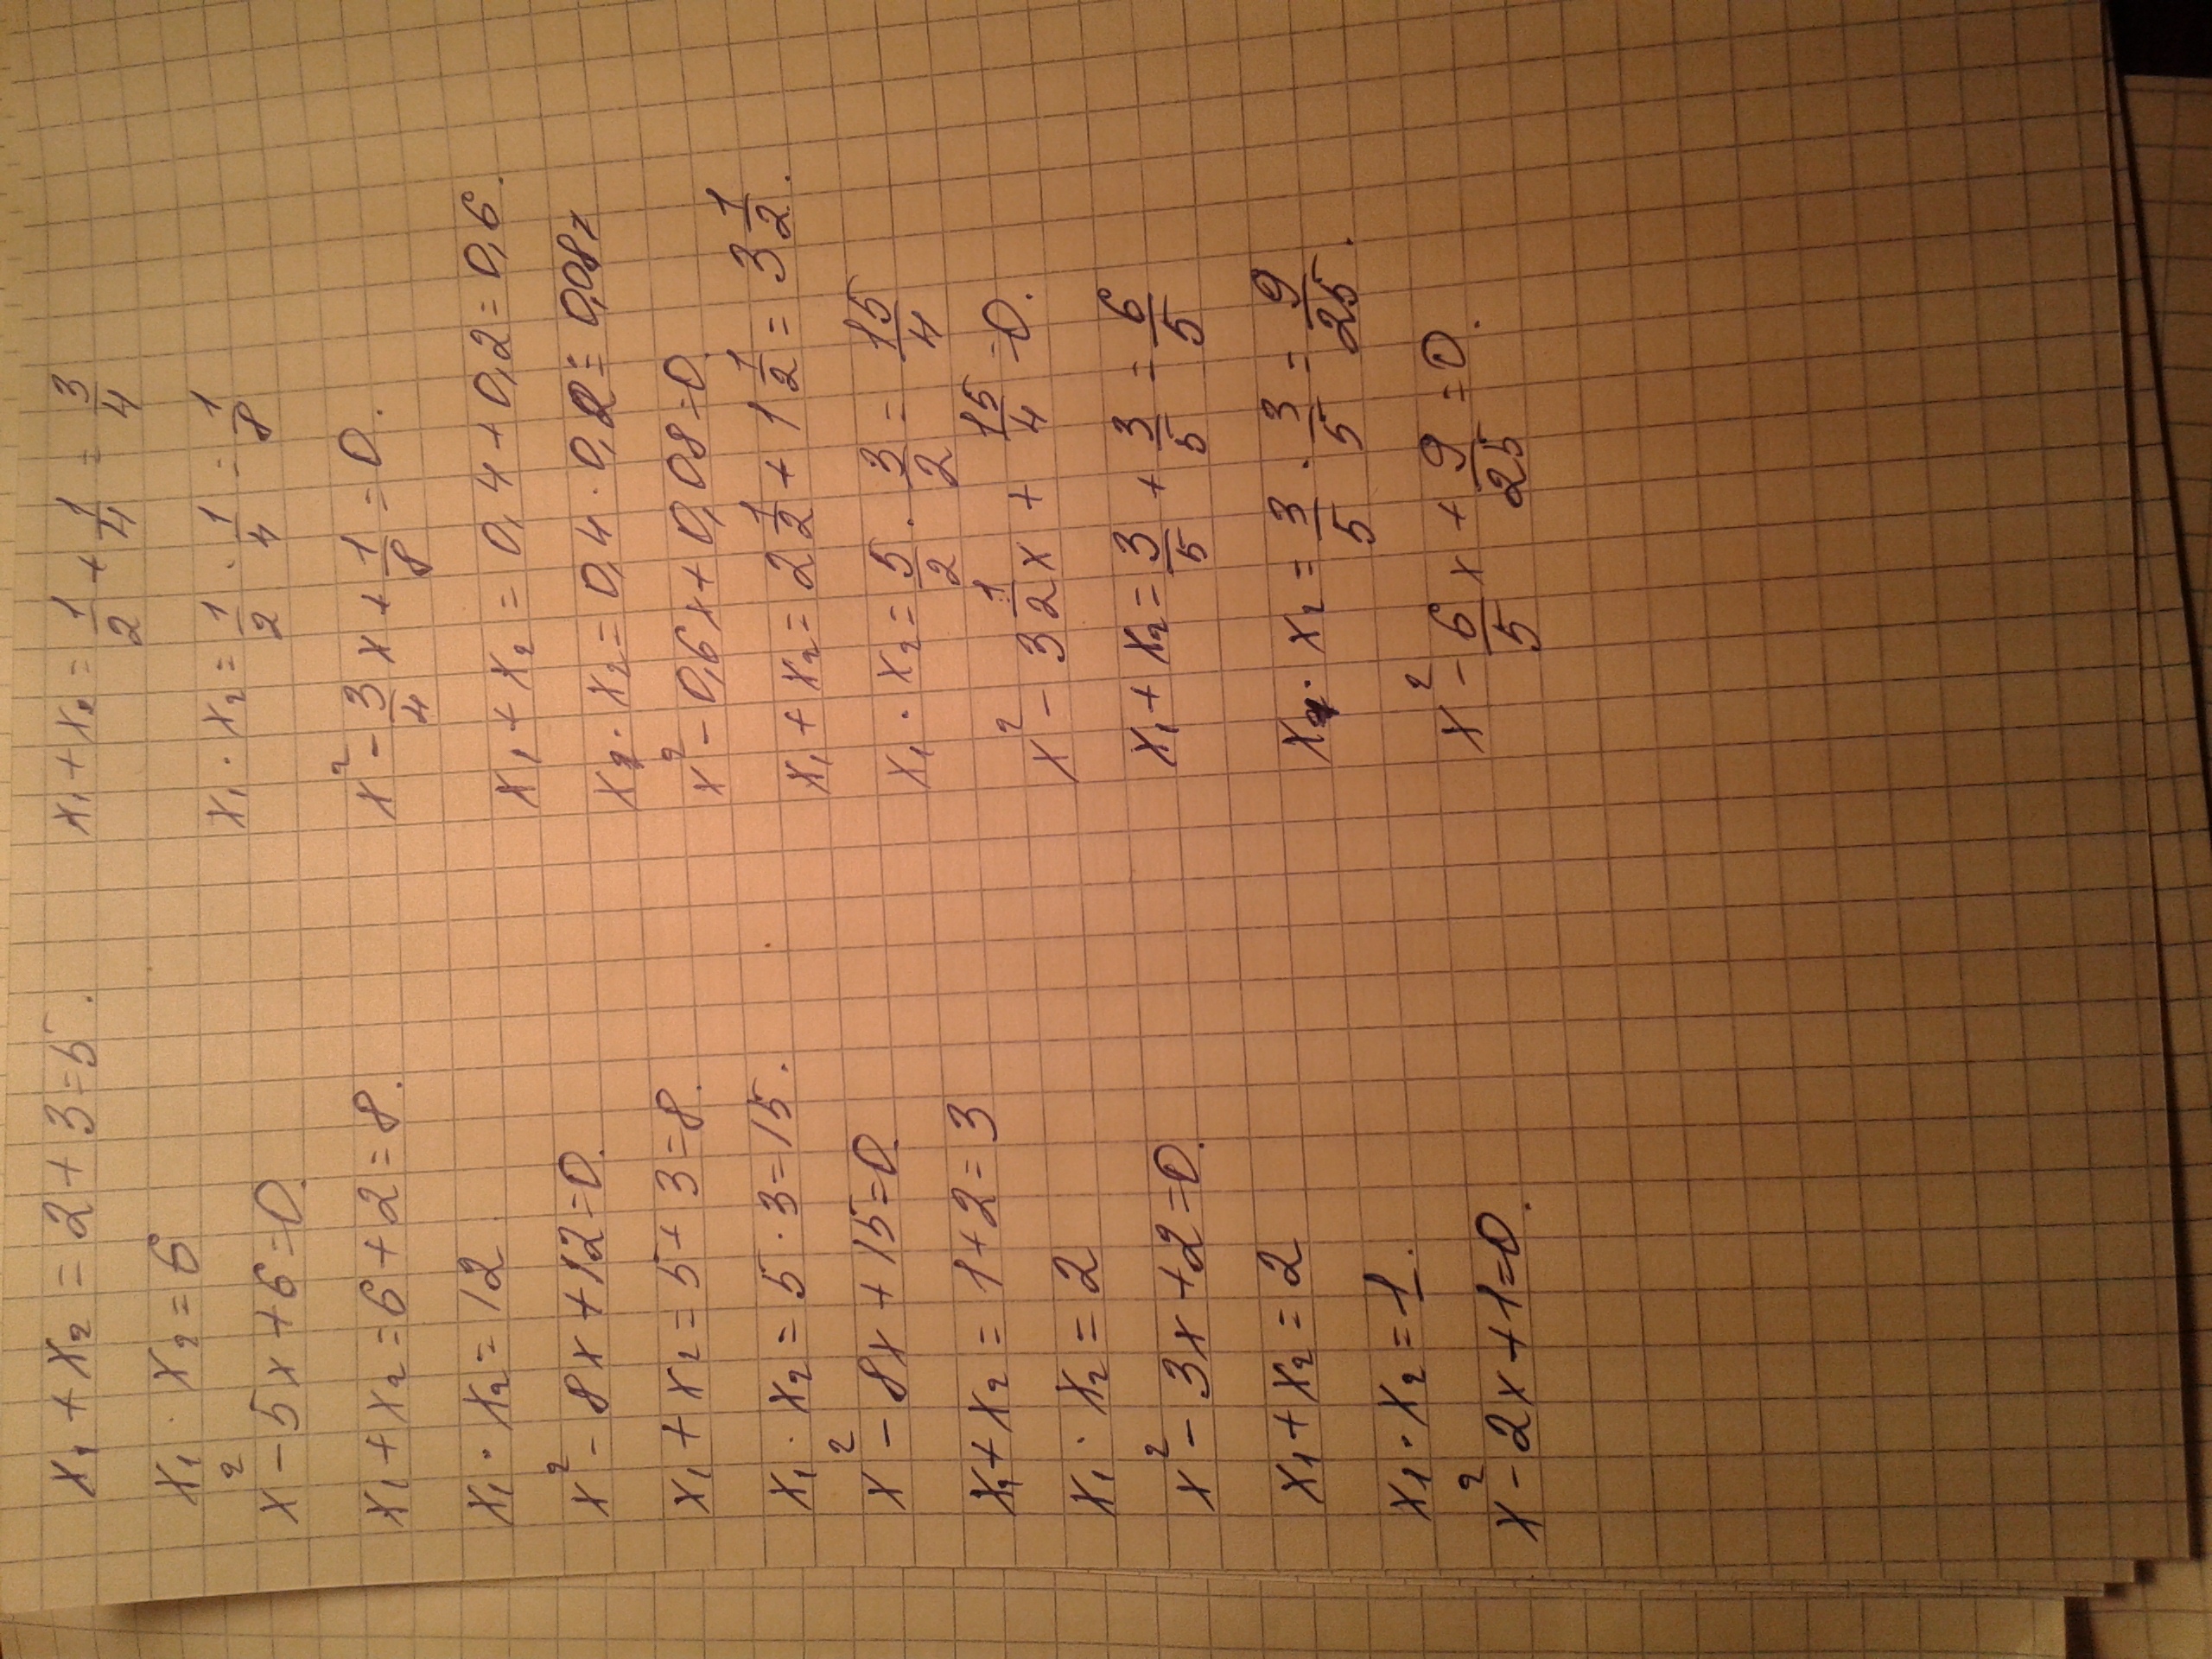 x₁ + x₂ = 2 + 3 = 5.
x₁ · x₂ = 6
x² - 5x + 6 = 0.
x₁ + x₂ = 6 + 2 = 8.
x₁ · x₂ = 12
x² - 8x + 12 = 0.
x₁ + x₂ = 5 + 3 = 8.
x₁ · x₂ = 5 · 3 = 15.
x² - 8x + 15 = 0.
x₁ + x₂ = 1 + 2 = 3
x₁ · x₂ = 2
x² - 3x + 2 = 0.
x₁ + x₂ = 2
x₁ · x₂ = 1.
x² - 2x + 1 = 0.
x₁ + x₂ = 1/2 + 1/4 = 3/4
x₁ · x₂ = 1/2 · 1/4 = 1/8
x² - 3/4 x + 1/8 = 0.
x₁ + x₂ = 0,4 + 0,2 = 0,6.
x₁ · x₂ = 0,4 · 0,2 = 0,08
x² - 0,6x + 0,08 = 0.
x₁ + x₂ = 2 1/2 + 1 1/2 = 3 1/2.
x₁ · x₂ = 5/2 · 3/2 = 15/4
x² - 3 1/2 x + 15/4 = 0.
x₁ + x₂ = 3/5 + 3/5 = 6/5
x₁ · x₂ = 3/5 · 3/5 = 9/25.
x² - 6/5 x + 9/25 = 0.